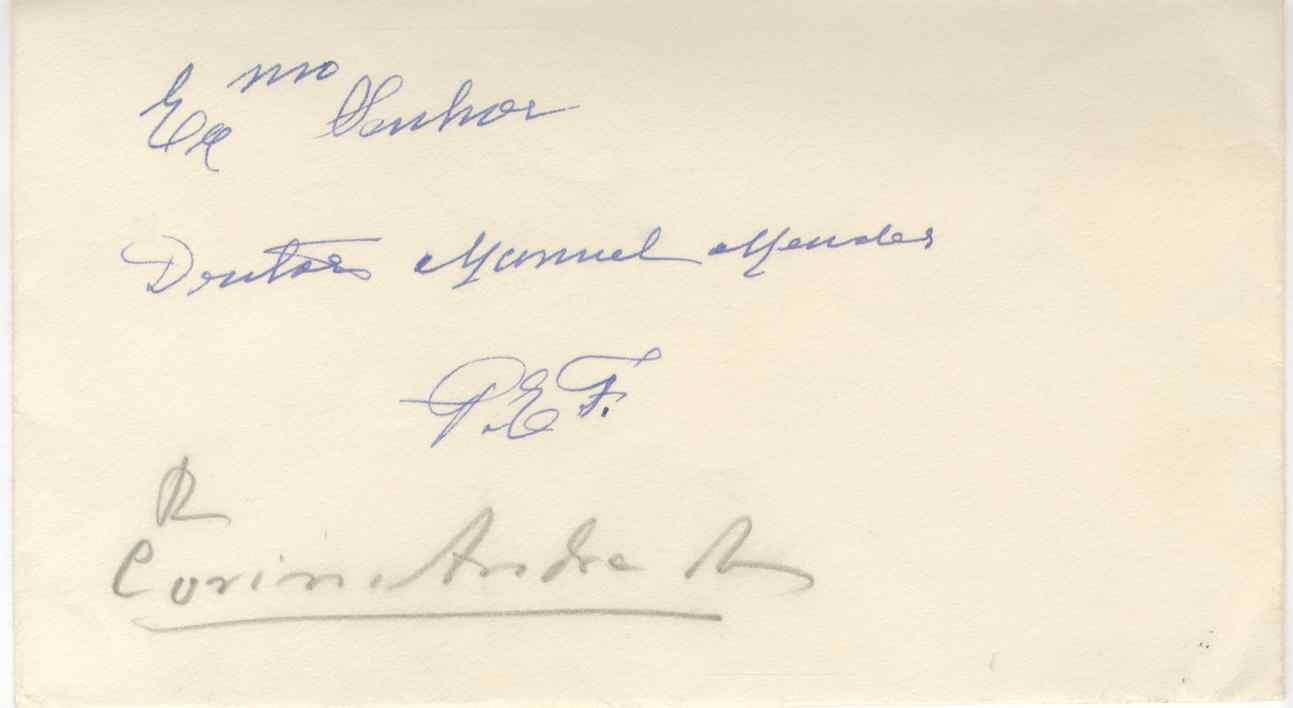 Exmo Senhor
Doutor Manuel Mendes
P.E.F.
R
Andrade